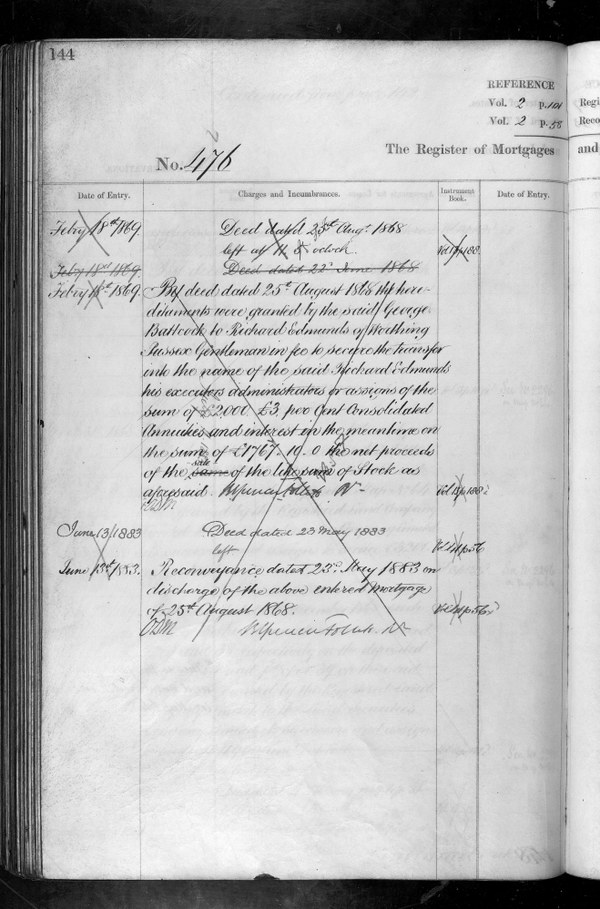 144
REFERENCE
Vol. 2 p. 101
Vol. 2 p. 58
Regi
Reco
The Register of Mortgages
and
No. 476
Date of Entry.
Charges and Incumbrances.
Instrument Book.
Date of Entry.
Feby 18th 1869
Deed dated 25th Augt. 1868
left at 11 o'clock
Vol p 188
Feby 18th 1869
Deed dated 22d June 1868
Feby 18th 1869.
By deed dated 25th August 1868 the here-
ditaments were granted by the said George
Battcock to Richard Edmunds of Worthing
Sussex Gentleman in fee to secure the transfer
into the name of the said Richard Edmunds
his executors administrators or assigns of the
sum of £2000 £3 per Cent Consolidated
Annuities and interest in the meantime on
the sum of £1767. 10. 0 the net proceeds
of the same sale of the like sum of Stock as
aforesaid.
Vol p 188
June 13/1883
Deed dated 23 May 1883
left
Vol p 56
June 13th 1883.
Reconveyance dated 23rd May 1883 on
discharge of the above entered Mortgage
of 25th August 1868.
Vol p 56